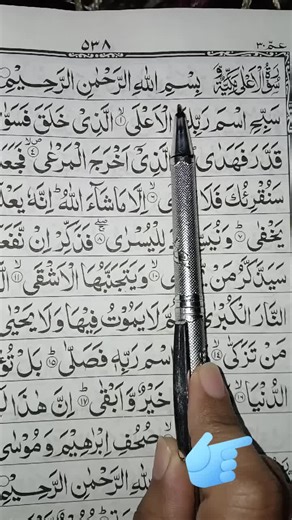 عمّ ۳۰ ۵۳۸
سُوْرَةُ الْاَعْلٰى مَكِّيَّةٌ بِسْمِ اللّٰهِ الرَّحْمٰنِ الرَّحِيْمِ
سَبِّحِ اسْمَ الْاَعْلَى ۙ‏۱ الَّذِىْ خَلَقَ فَسَوّٰ
قَدَّرَ فَهَدٰى اَخْرَجَ الْمَرْعٰى ۙ۴ فَجَعَ
سَنُقْرِئُكَ فَلَا اِلَّا مَا شَآءَ اللّٰهُ ؕ اِنَّهٗ يَعْلَ
يَخْفٰى ؕ۷ لِلْيُسْرٰى ۚۖ۸ فَذَكِّرْ اِنْ نَّفَعَ
سَيَذَّكَّرُ مَنْ ۙ۱۰ وَيَتَجَنَّبُهَا الْاَشْقَى ۙ۱۱
النَّارَ الْكُبْرٰى لَا يَمُوْتُ فِيْهَا وَلَا يَحْيٰى
مَنْ تَزَكّٰى ۙ۱۴ اسْمَ رَبِّهٖ فَصَلّٰى ؕ۱۵ بَلْ تُؤْ
الدُّنْيَا ۖ۱۶ خَيْرٌ وَّاَبْقٰى ؕ۱۷ اِنَّ هٰذَا لَ
صُحُفِ اِبْرٰهِيْمَ وَمُوْسٰى
اللّٰهِ الرَّحْمٰنِ الرَّحِيْمِ